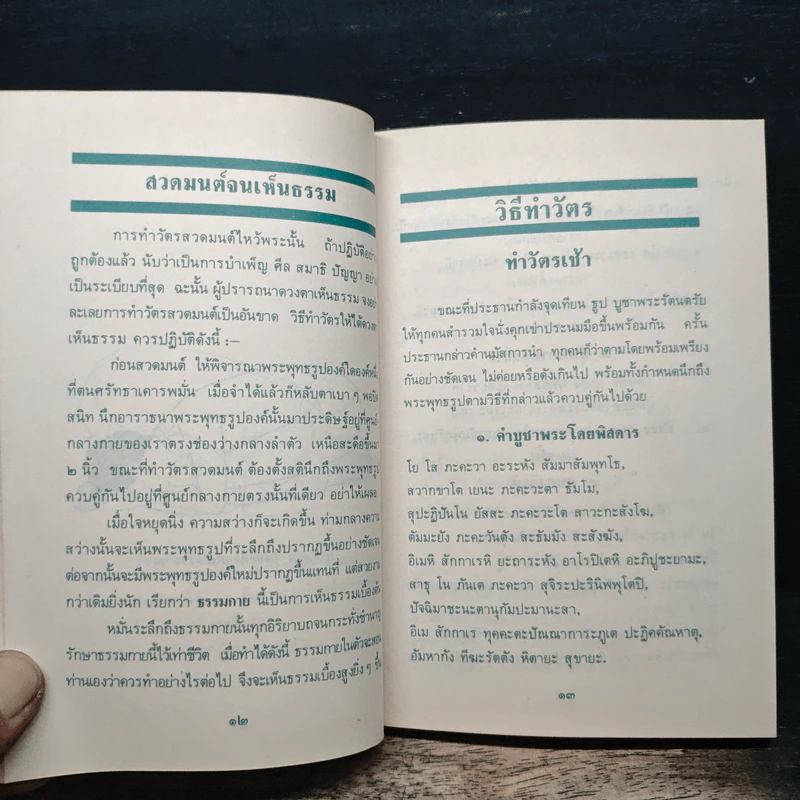 สวดมนต์จนเห็นธรรม
การทำวัตรสวดมนต์ไหว้พระนั้น ถ้าปฏิบัติอย่าง
ถูกต้องแล้ว นับว่าเป็นการบำเพ็ญ ศีล สมาธิ ปัญญา อย่าง
เป็นระเบียบที่สุด ฉะนั้น ผู้ปรารถนาดวงตาเห็นธรรม จงอย่า
ละเลยการทำวัตรสวดมนต์เป็นอันขาด วิธีทำวัตรให้ได้ดวงตา
เห็นธรรม ควรปฏิบัติดังนี้ :—
ก่อนสวดมนต์ ให้พิจารณาพระพุทธรูปองค์ใดองค์หนึ่ง
ที่ตนศรัทธาเคารพมั่น เมื่อจำได้แล้วก็หลับตาเบา ๆ พอปิด
สนิท นึกอาราธนาพระพุทธรูปองค์นั้นมาประดิษฐ์อยู่ที่ศูนย์
กลางกายของเราตรงช่องว่างกลางลำตัว เหนือสะดือขึ้นมา
๒ นิ้ว ขณะที่ทำวัตรสวดมนต์ ต้องตั้งสตินึกถึงพระพุทธรูป
ควบคู่กันไปอยู่ที่ศูนย์กลางกายตรงนั้นที่เดียว อย่าให้เผลอ
เมื่อใจหยุดนิ่ง ความสว่างก็จะเกิดขึ้น ท่ามกลางความ
สว่างนั้นจะเห็นพระพุทธรูปที่ระลึกถึงปรากฏขึ้นอย่างชัดเจน
ต่อจากนั้นจะมีพระพุทธรูปองค์ใหม่ปรากฏขึ้นแทนที่ แต่สวยงาม
กว่าเดิมยิ่งนัก เรียกว่า ธรรมกาย นี้เป็นการเห็นธรรมเบื้องต้น
หมั่นระลึกถึงธรรมกายนั้นทุกอิริยาบถจนกระทั่งชำนาญ
รักษาธรรมกายนี้ไว้เท่าชีวิต เมื่อทำได้ดังนี้ ธรรมกายในตัวจะสอน
ท่านเองว่าควรทำอย่างไรต่อไป จึงจะเห็นธรรมเบื้องสูงยิ่ง ๆ ขึ้น
๑๒
วิธีทำวัตร
ทำวัตรเช้า
ขณะที่ประธานกำลังจุดเทียน ธูป บูชาพระรัตนตรัย
ให้ทุกคนสำรวมใจนั่งคุกเข่าประนมมือขึ้นพร้อมกัน ครั้น
ประธานกล่าวคำนมัสการนำ ทุกคนก็ว่าตามโดยพร้อมเพรียง
กันอย่างชัดเจน ไม่ค่อยหรือดังเกินไป พร้อมทั้งกำหนดนึกถึง
พระพุทธรูปตามวิธีที่กล่าวแล้วควบคู่กันไปด้วย
๑. คำบูชาพระโดยพิสดาร
โย โส ภะคะวา อะระหัง สัมมาสัมพุทโธ,
สวากขาโต เยนะ ภะคะวะตา ธัมโม,
สุปะฏิปันโน ยัสสะ ภะคะวะโต สาวะกะสังโฆ,
ตัมมะยัง ภะคะวันตัง สะธัมมัง สะสังฆัง,
อิเมหิ สักกาเรหิ ยะถาระหัง อาโรปิเตหิ อะภิปูชะยามะ,
สาธุ โน ภันเต ภะคะวา สุจิระปะรินิพพุโตปิ,
ปัจฉิมาชะนะตานุกัมปะมานะสา,
อิเม สักกาเร ทุคคะตะปัณณาการะภูเต ปะฏิคคัณหาตุ,
อัมหากัง ทีฆะรัตตัง หิตายะ สุขายะ.
๑๓